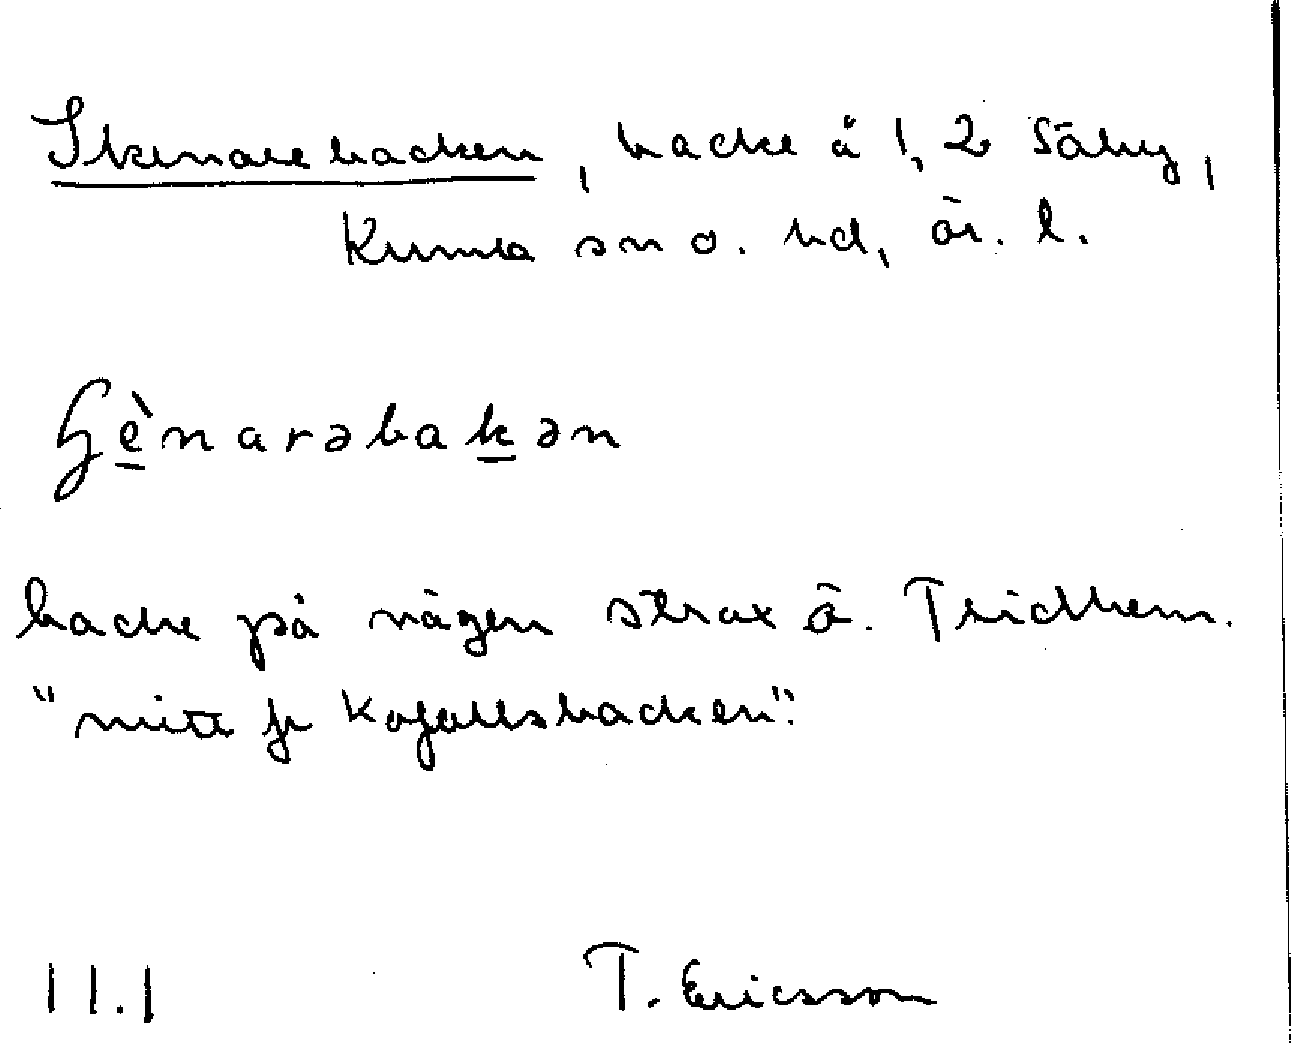 Skenarebacken, backe å 1,2 Säby,
Kumla sn o. hd, ör. l.
ɧènarəbakən
backe på vägen strax ö. Fridhem.
"mitt fr Kofallsbacken".
11.1 T. Ericsson